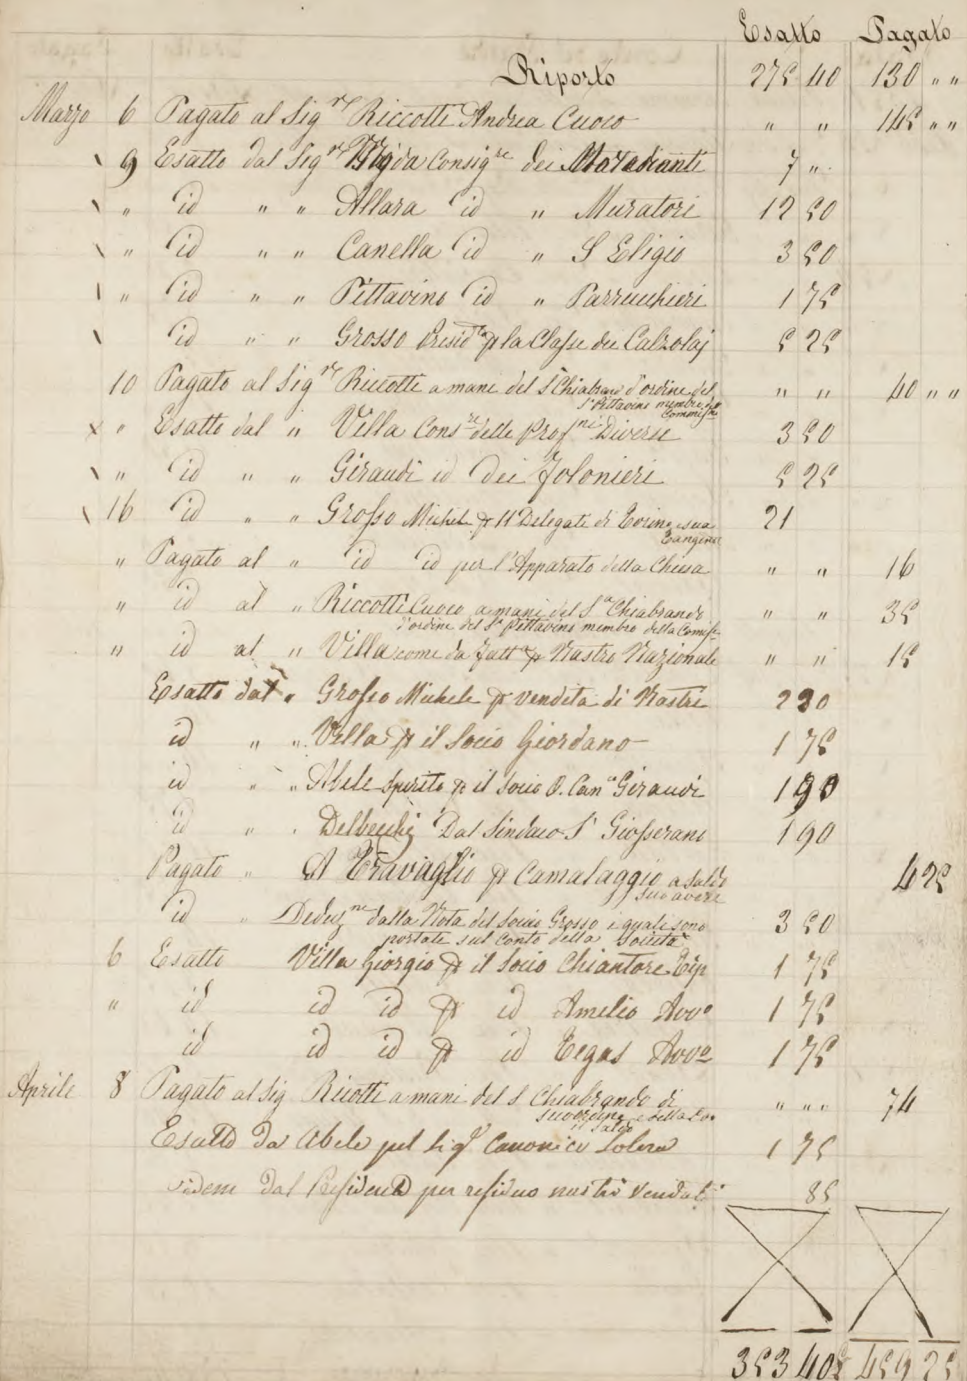 Esatto Pagato
Riporto 275 40 130 " "
Marzo 6 Pagato al Sigr Riccotti Andrea Cuoco " " 145 " "
\ 9 Esatto dal Sigr Consigre dei 7 "
\ " id " " Allara id " Muratori 12 50
\ " id " " Canella id " S Eligio 3 50
\ " id " " Pittavino id " Parrucchieri 1 75
\ id " " Grosso Presidte p la Classe dei Calzolaj 5 25
10 Pagato al Sigr Riccotti a mani del Sr Chiabrando d'ordine del " " 40 " "
Sr Pittavino membro della
Commisse
x " Esatto dal " Villa Consre delle Profni Diverse 3 50
\ " id " " Giraudi id dei 5 25
\ 16 id " " Grosso Michele p 11 Delegati di Torino e sua 21
" Pagato al " id id per l'Apparato della Chiesa " " 16
" id al " Riccotti Cuoco a mani del Sr Chiabrando " " 35
d'ordine del Sr Pittavino membro della Comisse
" id al " Villa come da fatt p Nastro Nazionale " " 15
Esatto dal " Grosso Michele p vendita di Nastri 2 20
id " " Villa p il Socio Giordano 1 75
id " " Abele Spirito p il Socio O. Canco Giraudi 1 90
id " " Dal Sindaco Sr Giosserano 1 90
Pagato " A Travaglio p Camalaggio a saldo 4 25
suo avere
id " Deduzne dalla Nota del Socio Grosso i quali sono 3 50
portate sul conto della Società
6 Esatto Villa Giorgio p il Socio Chiantore Tip 1 75
" id id id p id Amelio Avvo 1 75
id id id p id Tegas Avvo 1 75
Aprile 8 Pagato al Sig Ricotti a mani del S Chiabrando di " " " 74
suo ordine e della
a saldo
Esatto da Abele pel Sigr Canonico Solera 1 75
idem dal Presidente per residuo nastri venduti 85
353 40 459 25